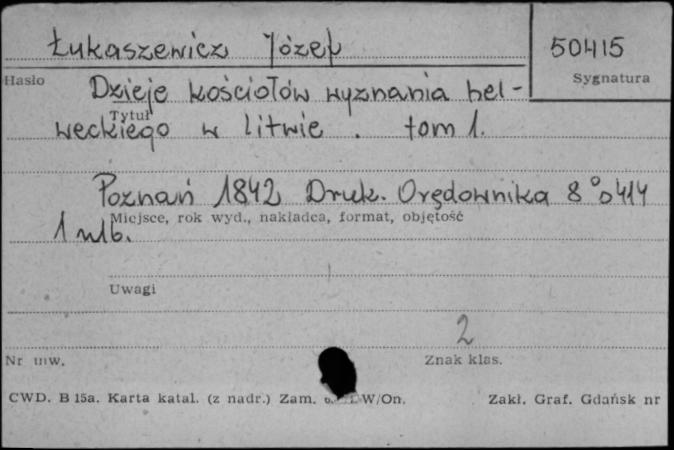 Łukaszewicz Józef
50415
Hasło
Sygnatura
Dzieje kościołów wyznania hel-
Tytuł
weckiego w litwie. tom 1.
Poznań 1842 Druk. Orędownika 8° 414
Miejsce, rok wyd., nakładca, format, objętość
1 nlb.
Uwagi
2
Nr inw.
Znak klas.
CWD. B 15a. Karta katal. (z nadr.) Zam. W/On.
Zakł. Graf. Gdańsk nr